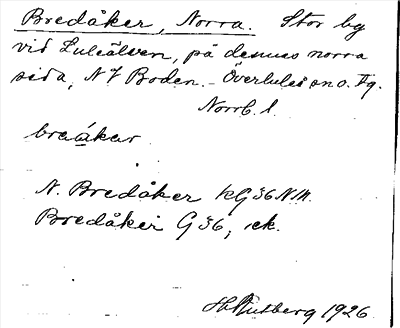 Bredåker, Norra. Stor by
vid Luleälven, på dennes norra
sida, NV Boden. - Överluleå sn o. tg.
Norrb. l.
braåkar
N. Bredåker kG 36 NM.
Bredåker G 36, ek.
Hultberg 1926